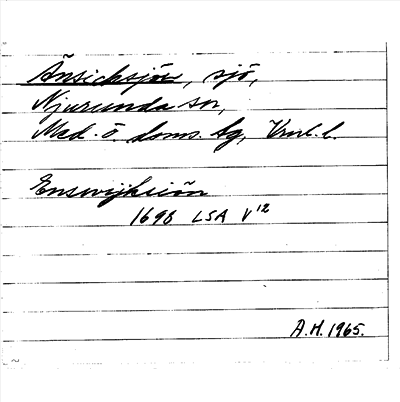 Änsicksjön, sjö,
Njurunda sn,
Med. ö. doms. tg, Vnrl. l.
Enswijksiön
1698 LSA V12
A.H. 1965.